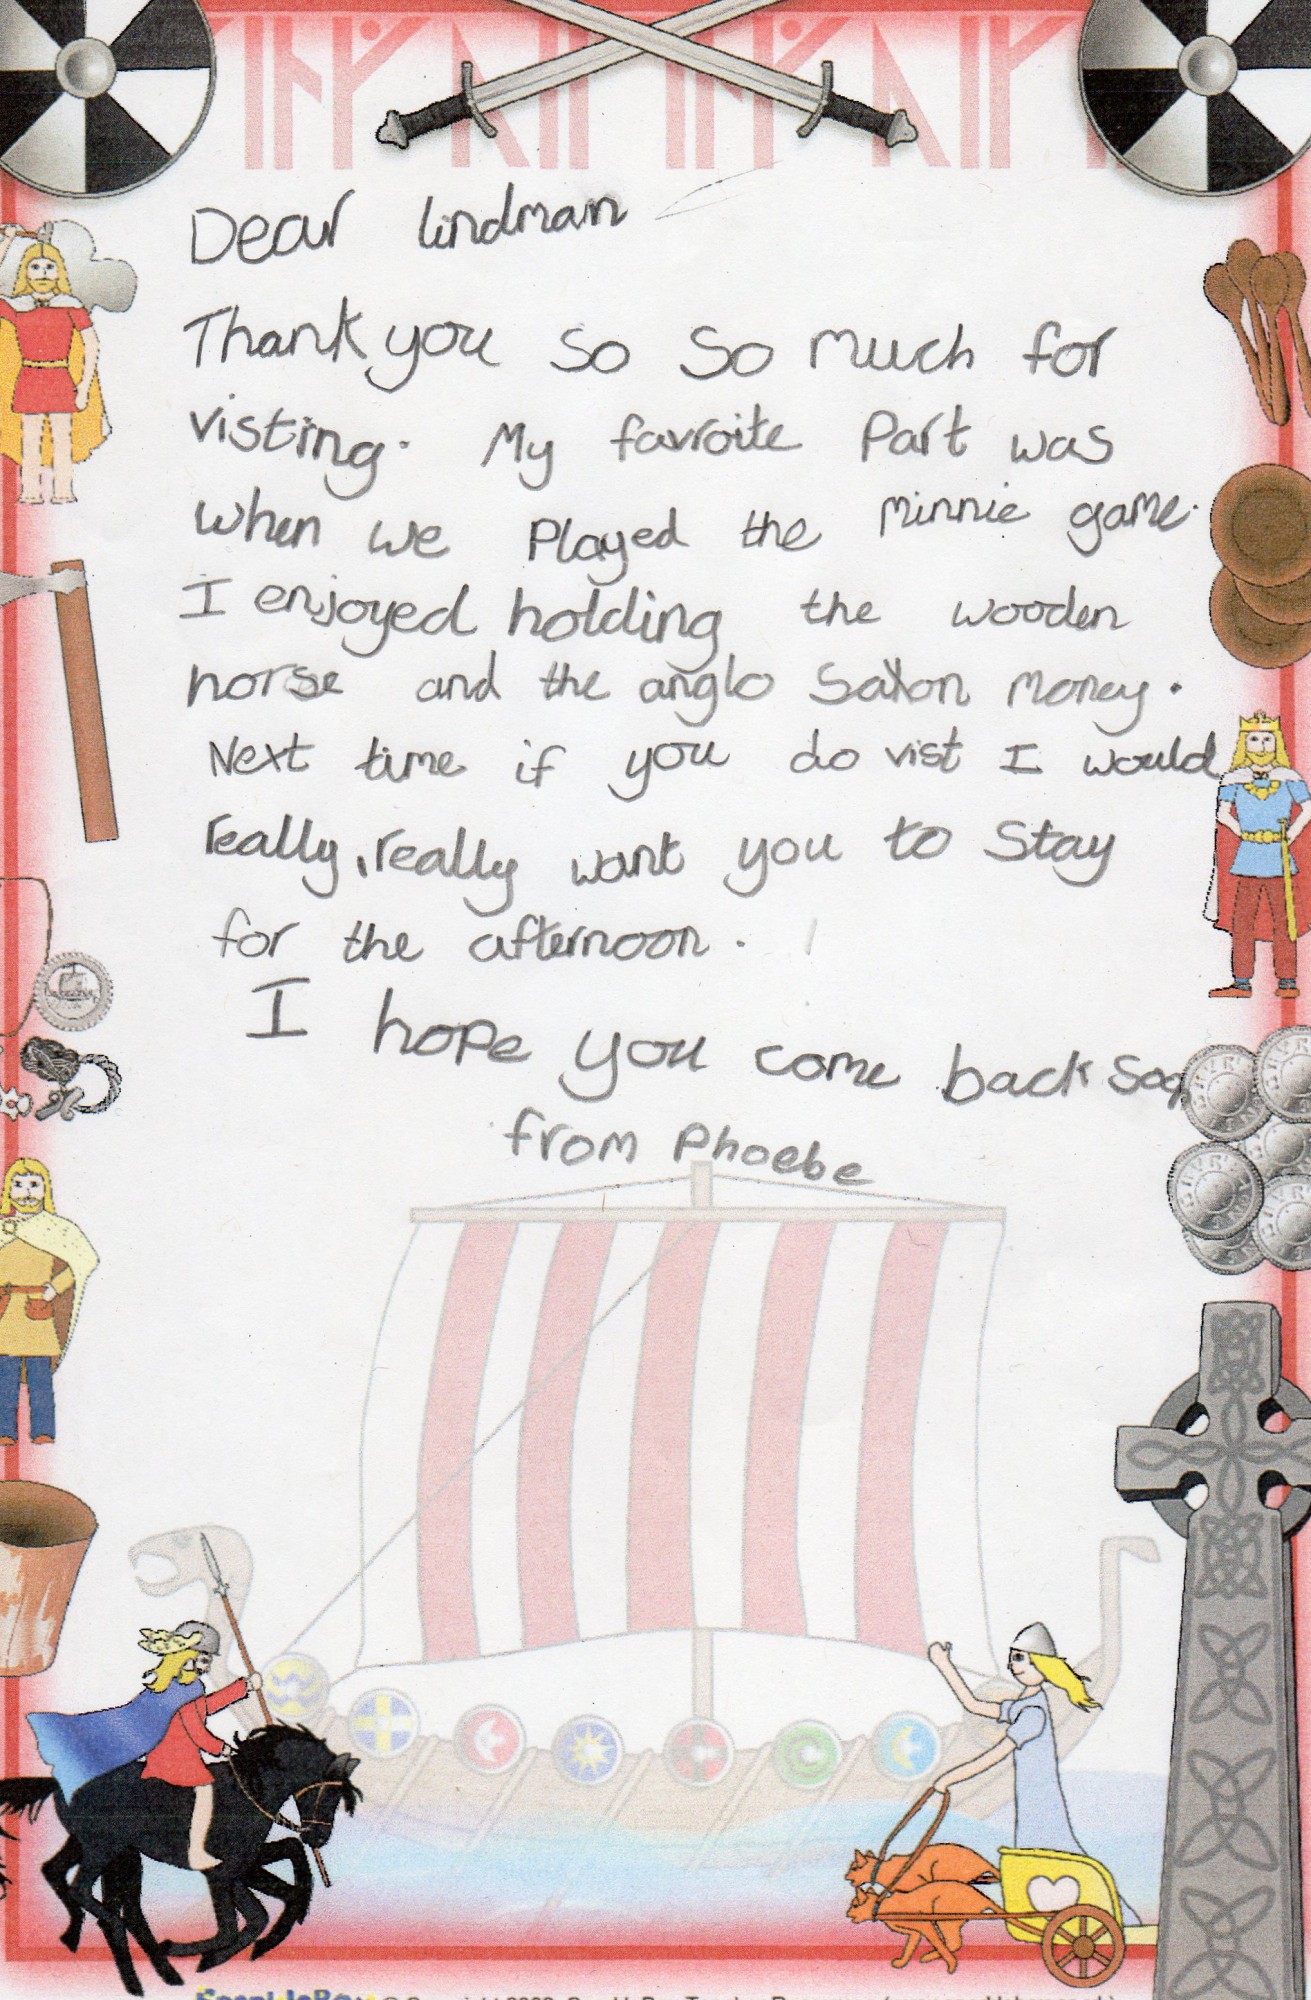 Dear lindman
Thank you so so much for
visting. My favroite Part was
when we Played the minnie game.
I enjoyed holding the wooden
horse and the anglo saxon money.
Next time if you do vist I would
really, really want you to stay
for the afternoon.
I hope you come back soo
from Phoebe